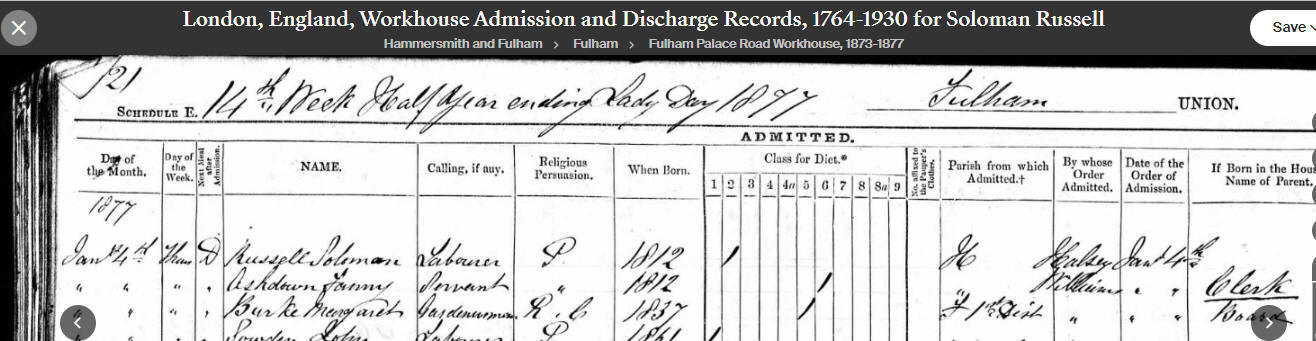 London, England, Workhouse Admission and Discharge Records, 1764-1930 for Soloman Russell
Save
Hammersmith and Fulham > Fulham > Fulham Palace Road Workhouse, 1873-1877
121
SCHEDULE E. 14th Week Half Year ending Lady Day 1877 Fulham UNION.
ADMITTED.
Day of the Month. Day of the Week. Next Meal after Admission. NAME. Calling, if any. Religious Persuasion. When Born. Class for Diet.* No. affixed to the Pauper's Clothes. Parish from which Admitted.† By whose Order Admitted. Date of the Order of Admission. If Born in the Hou Name of Parent.
1 2 3 4 4a 5 6 7 8 8a 9
1877
Jany 4th Thurs D Russell Soloman Labourer P. 1812 / H Halsey Jany 4th
" " " " Ashdown Fanny Servant " 1812 / " Williams " " Clerk
" " " " Burke Margaret Gardenwoman R. C 1837 / F 1st Dist " " " Board
" " " Sowden John Labourer P 1861 /